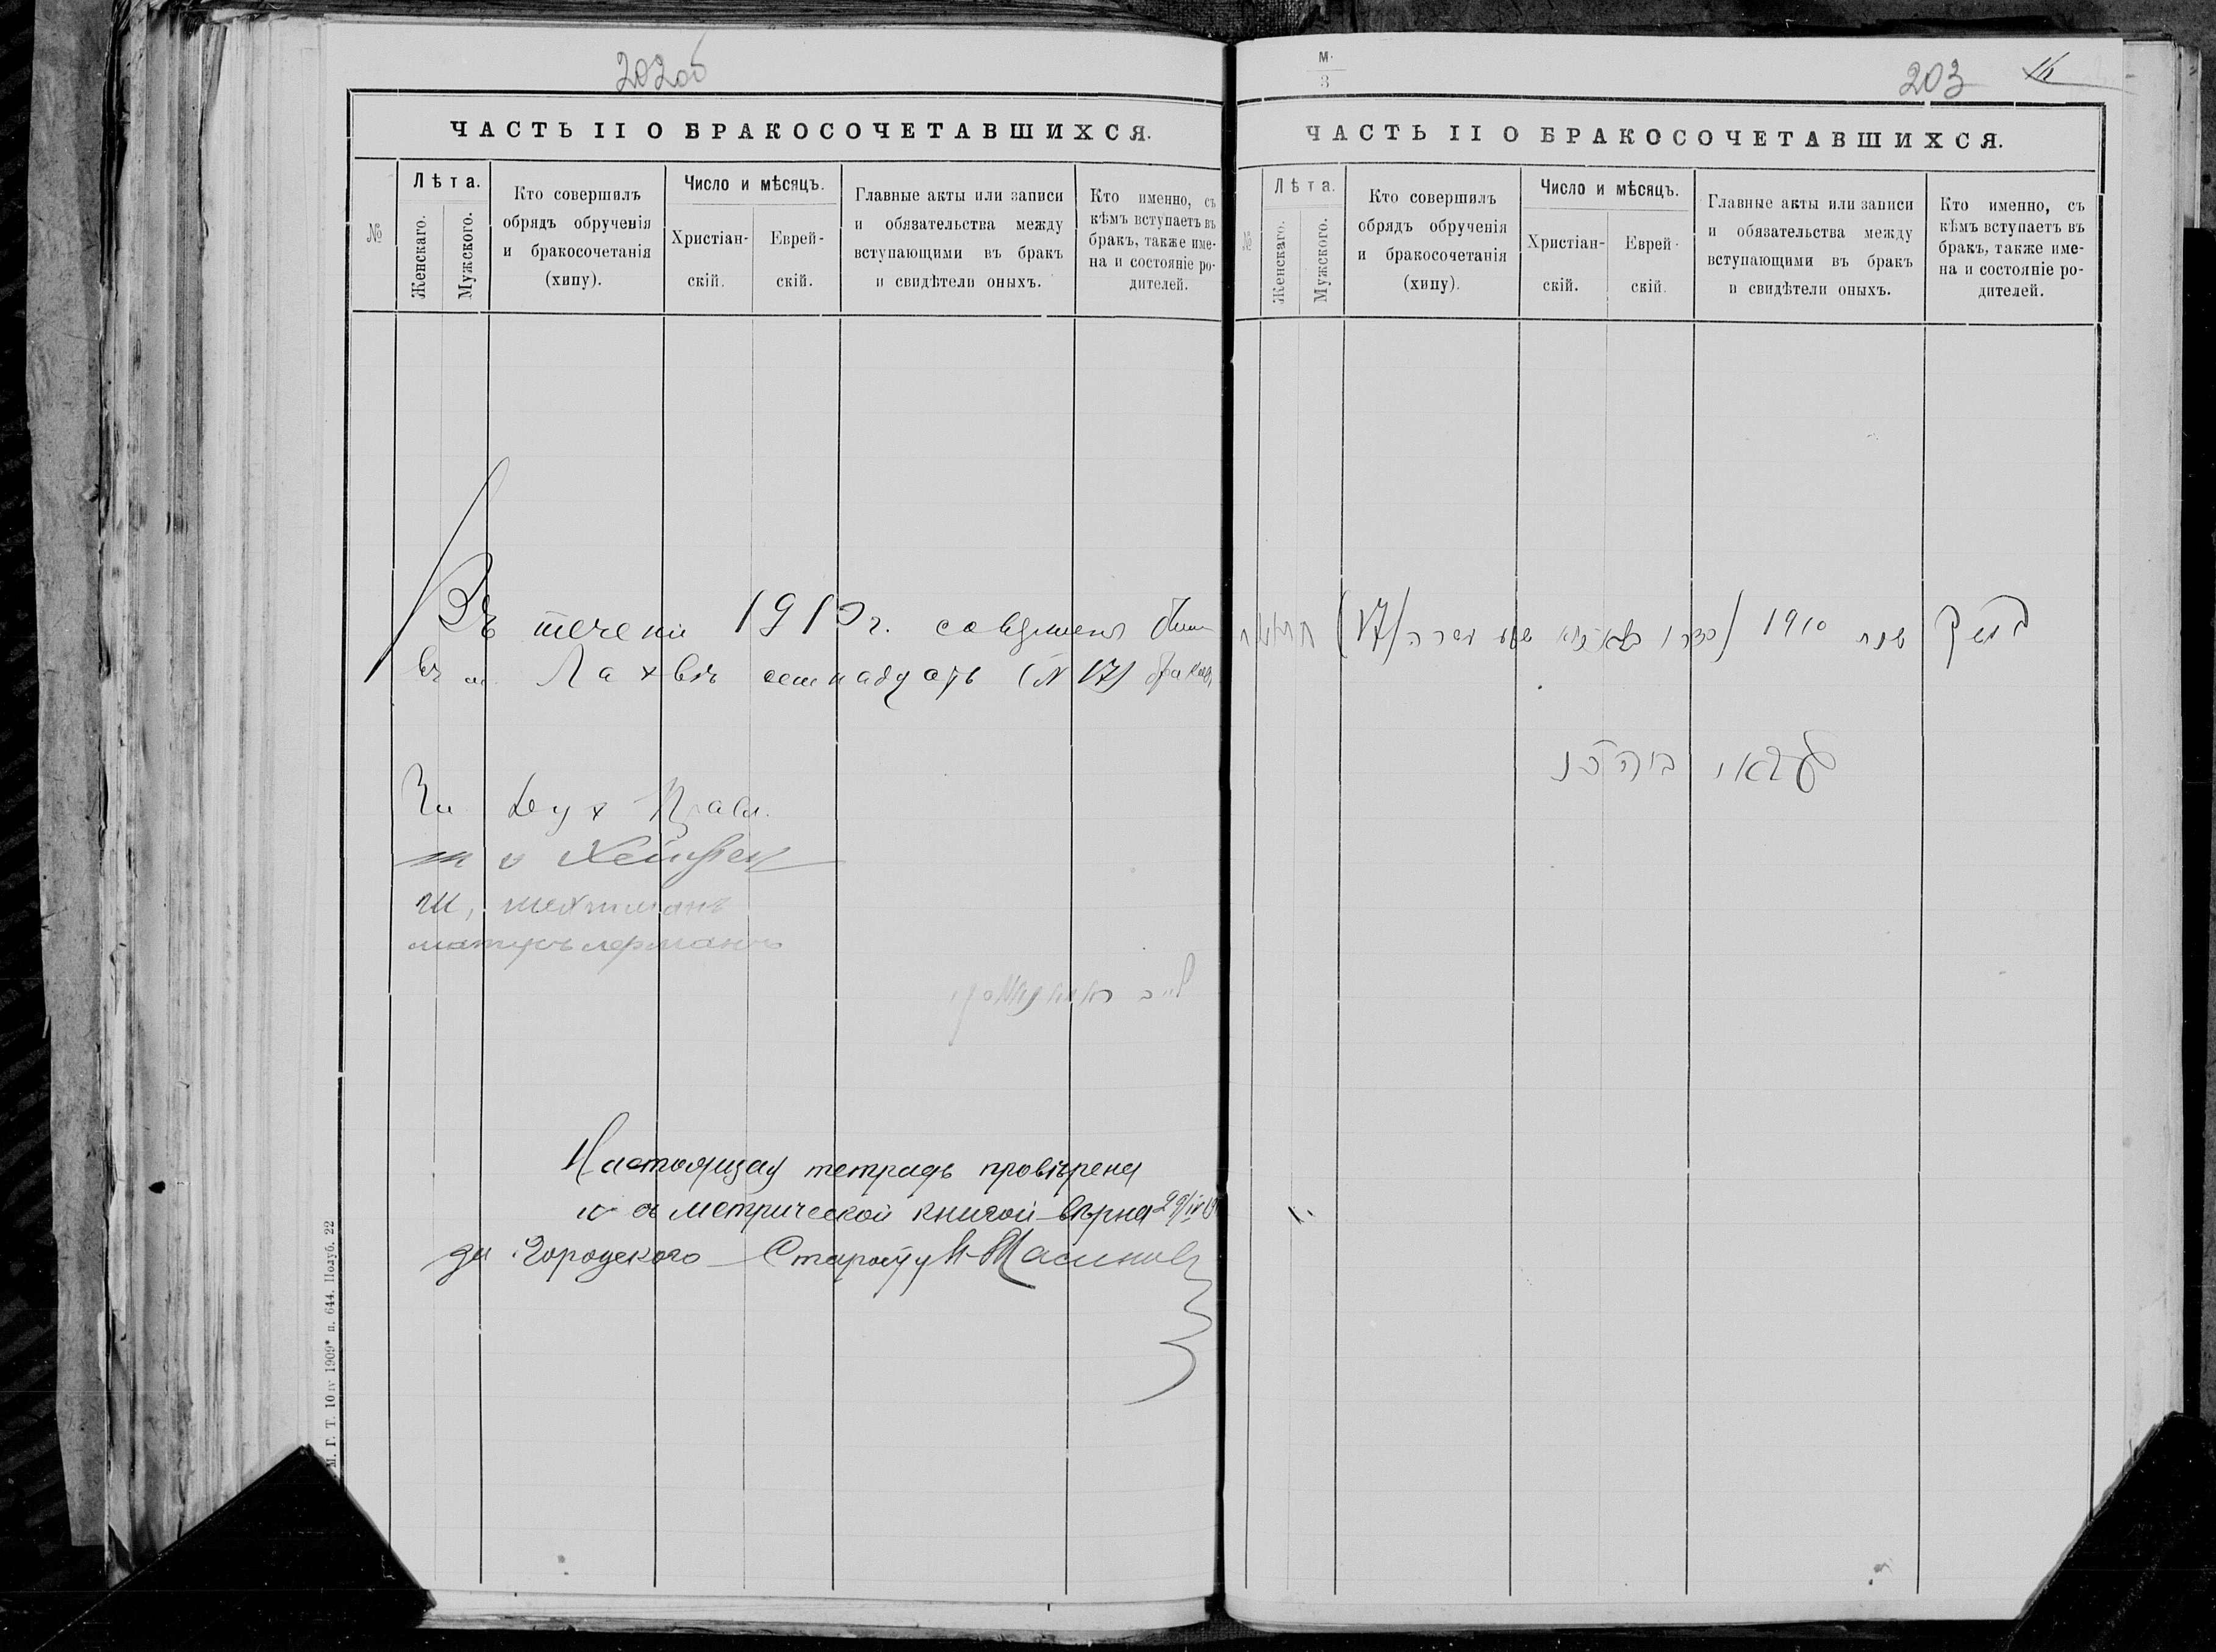 202об
ЧАСТЬ II О БРАКОСОЧЕТАВШИХСЯ.
№
Лѣта.
Женскаго.
Мужского.
Кто совершилъ
обрядъ обрученія
и бракосочетанія
(хипу).
Число и мѣсяцъ.
Христіан-
скій.
Еврей-
скій.
Главные акты или записи
и обязательства между
вступающими въ бракъ
и свидѣтели оныхъ.
Кто именно, съ
кѣмъ вступаетъ въ
бракъ, также име-
на и состояніе ро-
дителей.
Въ течени 1910 г.
въ м. Лахвѣ семнадцать (№ 17) браковъ
За Дух Прав.
Ш, шехтманъ
Настоящая тетрадь провѣрена
и съ метрической книгой вѣрна
за Городского Старосту
М. Г. Т. 10 IV 1909* п. 644. Полуб. 22
М.
3
203
ЧАСТЬ II О БРАКОСОЧЕТАВШИХСЯ.
№
Лѣта.
Женскаго.
Мужского.
Кто совершилъ
обрядъ обрученія
и бракосочетанія
(хипу).
Число и мѣсяцъ.
Христіан-
скій.
Еврей-
скій.
Главные акты или записи
и обязательства между
вступающими въ бракъ
и свидѣтели оныхъ.
Кто именно, съ
кѣмъ вступаетъ въ
бракъ, также име-
на и состояніе ро-
дителей.
במשך שנת 1910 (17)